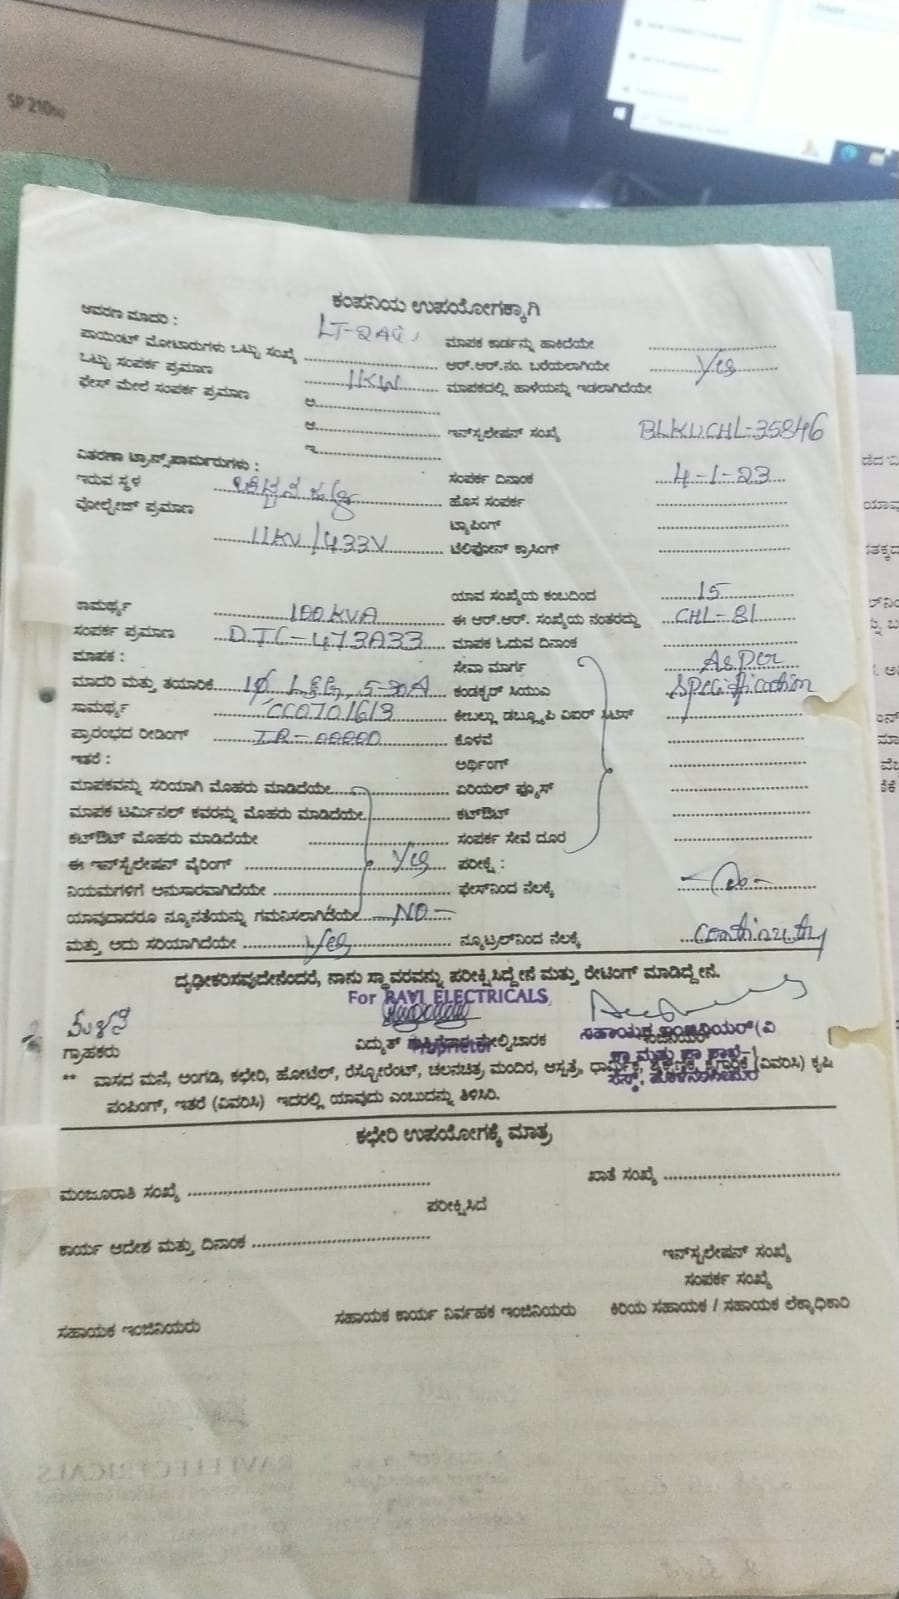 SP 210
ಕಂಪನಿಯ ಉಪಯೋಗಕ್ಕಾಗಿ
ಆವರಣ ಮಾದರಿ :
ಪಾಯಿಂಟ್ ಮೋಟಾರುಗಳು ಒಟ್ಟು ಸಂಖ್ಯೆ ಮಾಪಕ ಕಾರ್ಡನ್ನು ಹಾಕಿದೆಯೇ
ಒಟ್ಟು ಸಂಪರ್ಕ ಪ್ರಮಾಣ 1KW ಆರ್.ಆರ್.ನಂ. ಬರೆಯಲಾಗಿಯೇ Yes
ಫೇಸ್ ಮೇಲೆ ಸಂಪರ್ಕ ಪ್ರಮಾಣ ಮಾಪಕದಲ್ಲಿ ಹಾಳೆಯನ್ನು ಇಡಲಾಗಿದೆಯೇ
ಅ.
ಆ. ಇನ್‌ಸ್ಟಲೇಷನ್ ಸಂಖ್ಯೆ BLKUCHL-35846
ಇ.
ವಿತರಣಾ ಟ್ರಾನ್ಸ್‌ಫಾರ್ಮರುಗಳು :
ಇರುವ ಸ್ಥಳ ಸಂಪರ್ಕ ದಿನಾಂಕ 4-1-23
ವೋಲ್ಟೇಜ್ ಪ್ರಮಾಣ ಹೊಸ ಸಂಪರ್ಕ
ಟ್ಯಾಪಿಂಗ್
11KV/433V ಟೆಲಿಫೋನ್ ಕ್ರಾಸಿಂಗ್
ಯಾವ ಸಂಖ್ಯೆಯ ಕಂಬದಿಂದ 15
ಸಾಮರ್ಥ್ಯ 100KVA ಈ ಆರ್.ಆರ್. ಸಂಖ್ಯೆಯ ನಂತರದ್ದು CHL-81
ಸಂಪರ್ಕ ಪ್ರಮಾಣ DTC-473A33 ಮಾಪಕ ಓದುವ ದಿನಾಂಕ
ಮಾಪಕ : ಸೇವಾ ಮಾರ್ಗ As per
ಮಾದರಿ ಮತ್ತು ತಯಾರಿಕೆ 1φ L&G, 5-30A ಕಂಡಕ್ಟರ್ ಸಿಯುಎ Specification
ಸಾಮರ್ಥ್ಯ CC0701613 ಕೇಬಲ್ಲು ಡಬ್ಲ್ಯೂಪಿ ವಿಐರ್
ಪ್ರಾರಂಭದ ರೀಡಿಂಗ್ IR-00000 ಕೊಳವೆ
ಇತರೆ : ಅರ್ಥಿಂಗ್
ಮಾಪಕವನ್ನು ಸರಿಯಾಗಿ ಮೊಹರು ಮಾಡಿದೆಯೇ ಏರಿಯಲ್ ಫ್ಯೂಸ್
ಮಾಪಕ ಟರ್ಮಿನಲ್ ಕವರನ್ನು ಮೊಹರು ಮಾಡಿದೆಯೇ ಕಟ್‌ಔಟ್
ಕಟ್‌ಔಟ್ ಮೊಹರು ಮಾಡಿದೆಯೇ ಸಂಪರ್ಕ ಸೇವೆ ದೂರ
ಈ ಇನ್‌ಸ್ಟಲೇಷನ್ ವೈರಿಂಗ್ Yes ಪರೀಕ್ಷೆ :
ನಿಯಮಗಳಿಗೆ ಅನುಸಾರವಾಗಿದೆಯೇ ಫೇಸ್‌ನಿಂದ ನೆಲಕ್ಕೆ
ಯಾವುದಾದರೂ ನ್ಯೂನತೆಯನ್ನು ಗಮನಿಸಲಾಗಿದೆಯೇ NO-
ಮತ್ತು ಅದು ಸರಿಯಾಗಿದೆಯೇ Yes ನ್ಯೂಟ್ರಲ್‌ನಿಂದ ನೆಲಕ್ಕೆ Continuity
ದೃಢೀಕರಿಸವುದೇನೆಂದರೆ, ನಾನು ಸ್ಥಾವರವನ್ನು ಪರೀಕ್ಷಿಸಿದ್ದೇನೆ ಮತ್ತು ರೇಟಿಂಗ್ ಮಾಡಿದ್ದೇನೆ.
For RAVI ELECTRICALS
ಸಹಾಯಕ ಇಂಜಿನಿಯರ್(ವಿ
ಗ್ರಾಹಕರು ವಿದ್ಯುತ್ ಮೇಲ್ವಿಚಾರಕ
** ವಾಸದ ಮನೆ, ಅಂಗಡಿ, ಕಛೇರಿ, ಹೋಟೆಲ್, ರೆಸ್ಟೋರೆಂಟ್, ಚಲನಚಿತ್ರ ಮಂದಿರ, ಆಸ್ಪತ್ರೆ, ಧಾರ್ಮಿಕ, ಕೈಗಾರಿಕೆ (ವಿವರಿಸಿ) ಕೃಷಿ
ಪಂಪಿಂಗ್, ಇತರೆ (ವಿವರಿಸಿ) ಇದರಲ್ಲಿ ಯಾವುದು ಎಂಬುದನ್ನು ತಿಳಿಸಿರಿ.
ಕಛೇರಿ ಉಪಯೋಗಕ್ಕೆ ಮಾತ್ರ
ಮಂಜೂರಾತಿ ಸಂಖ್ಯೆ ಖಾತೆ ಸಂಖ್ಯೆ
ಪರೀಕ್ಷಿಸಿದೆ
ಕಾರ್ಯ ಆದೇಶ ಮತ್ತು ದಿನಾಂಕ
ಇನ್‌ಸ್ಟಲೇಷನ್ ಸಂಖ್ಯೆ
ಸಂಪರ್ಕ ಸಂಖ್ಯೆ
ಸಹಾಯಕ ಇಂಜಿನಿಯರು ಸಹಾಯಕ ಕಾರ್ಯ ನಿರ್ವಹಕ ಇಂಜಿನಿಯರು ಕಿರಿಯ ಸಹಾಯಕ / ಸಹಾಯಕ ಲೆಕ್ಕಾಧಿಕಾರಿ